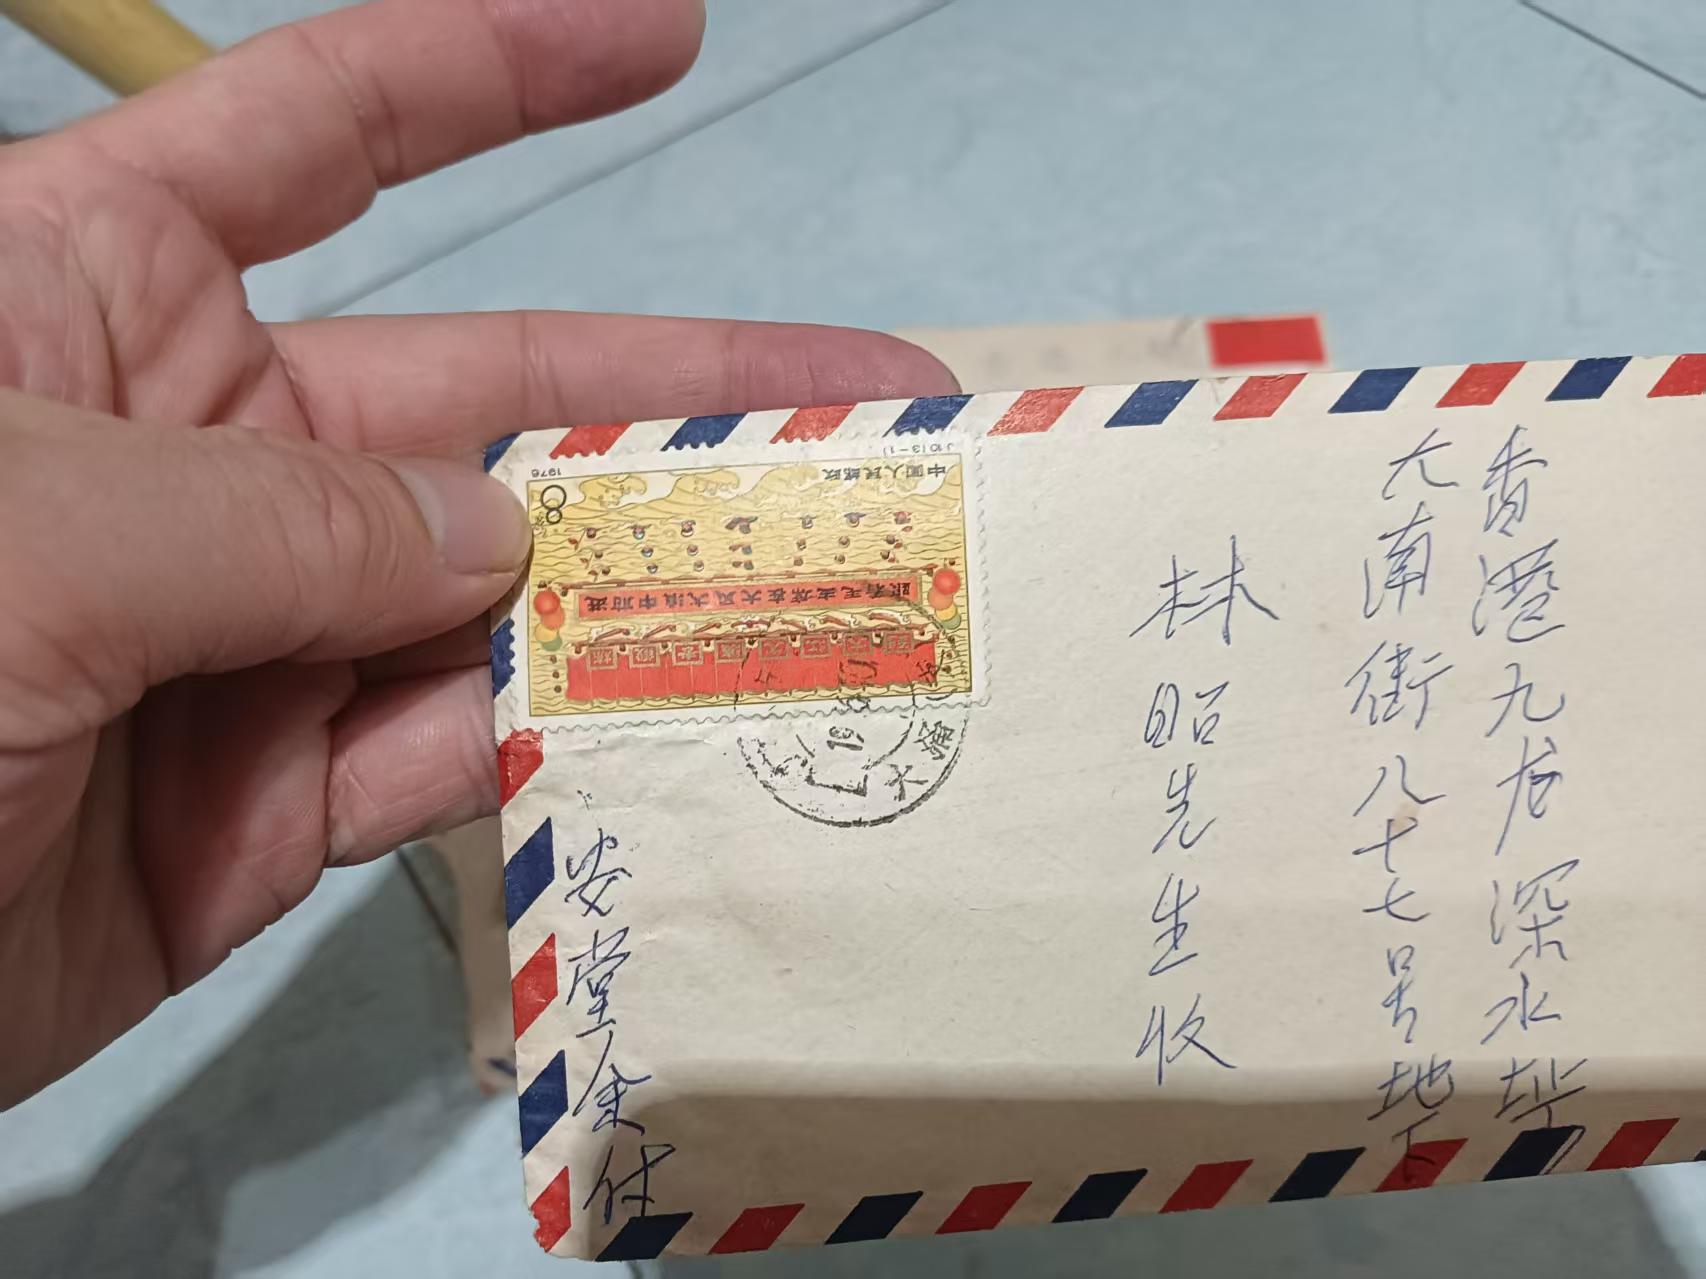 香港九龙深水埗
大南街八十七号地下
林昭先生收
安堂金付
中国人民邮政
8
1976
J10(3-1)
跟着毛主席在大风大浪中前进
大海
19